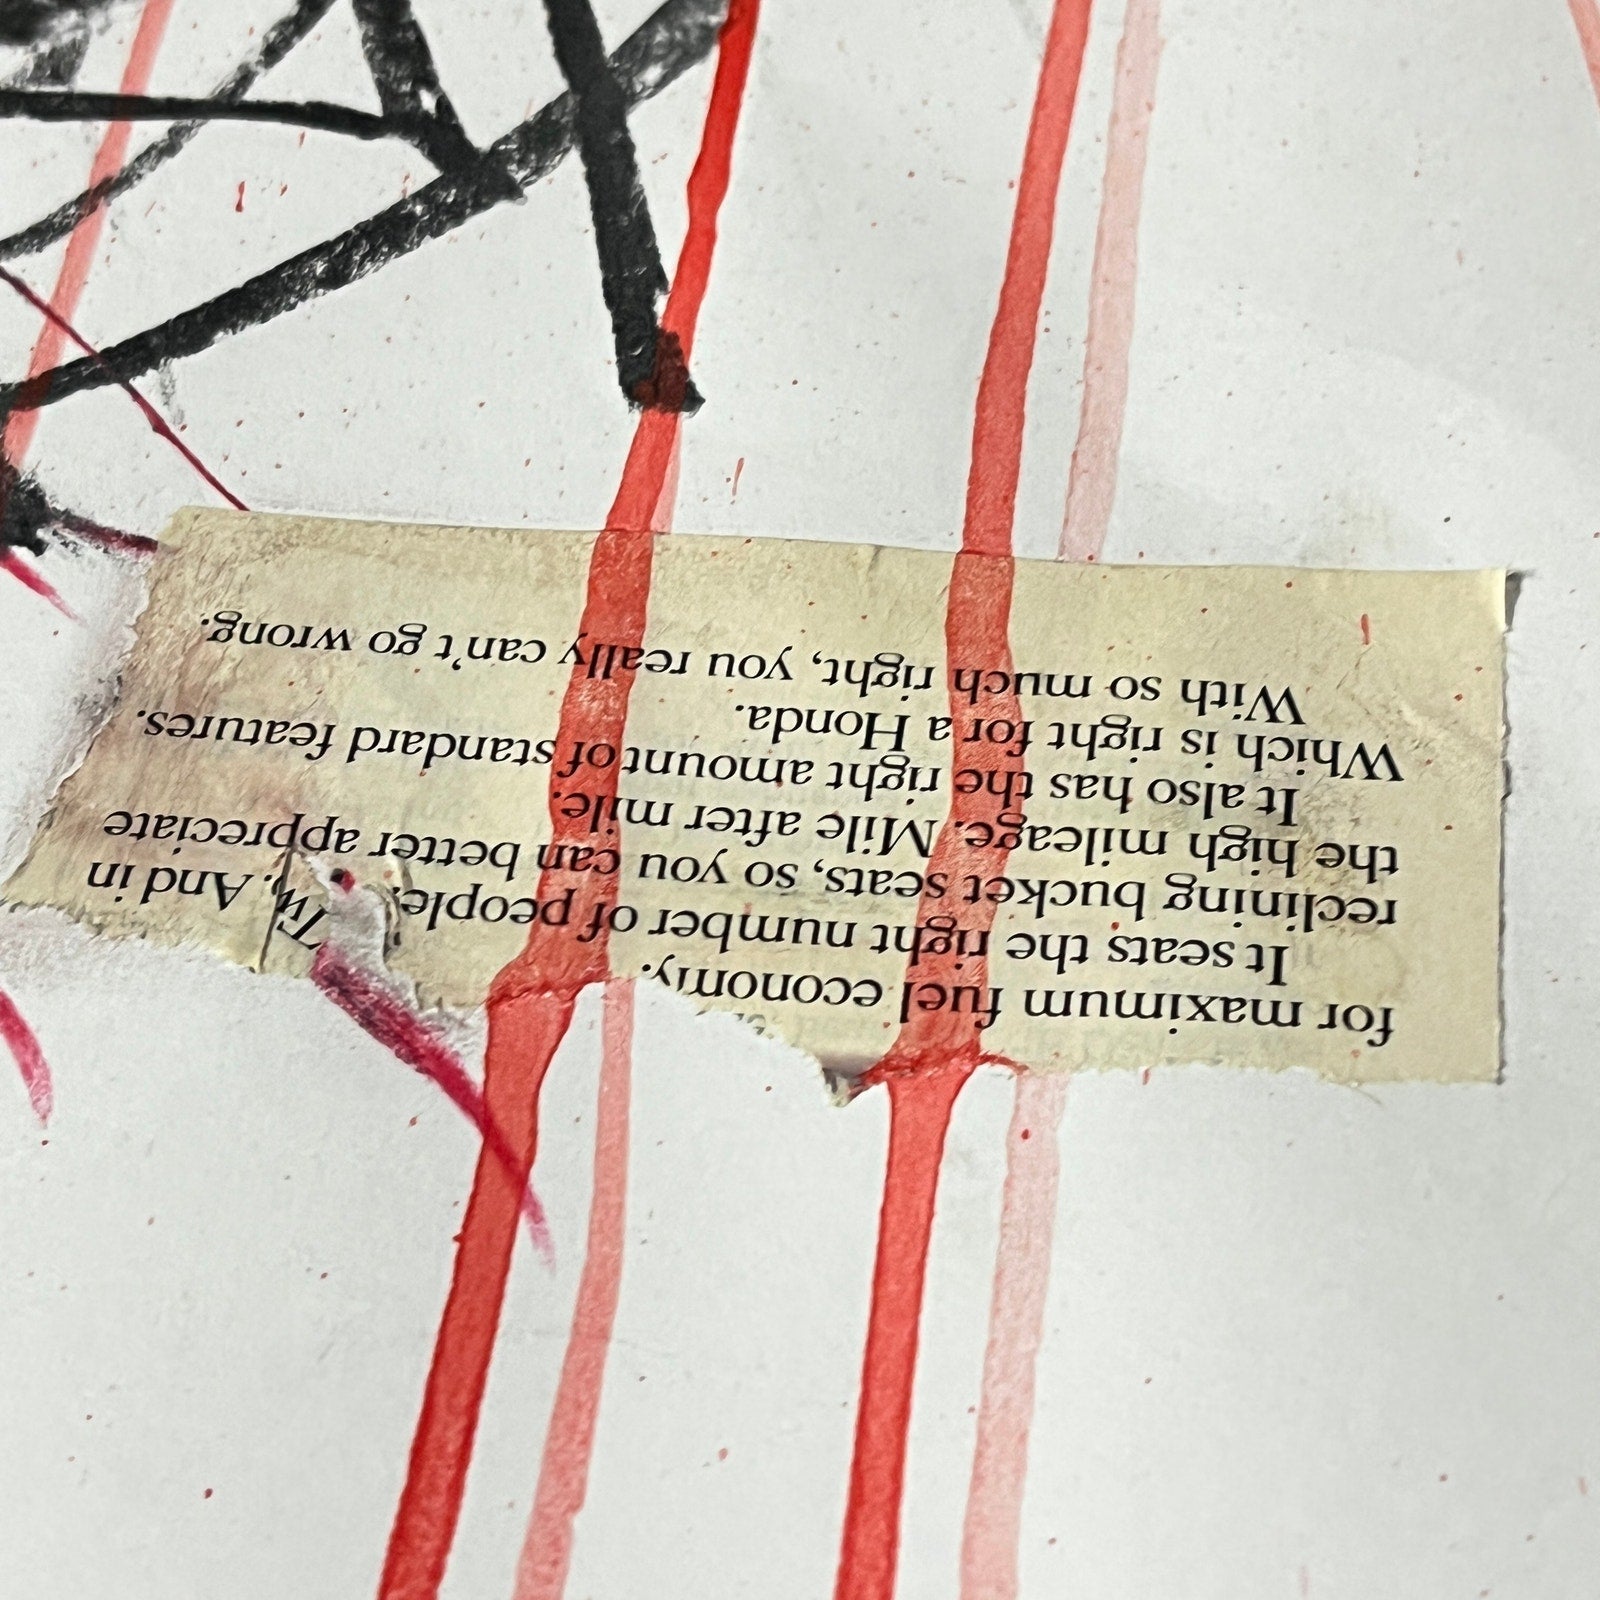 for maximum fuel economy.
It seats the right number of people, Two. And in
reclining bucket seats, so you can better appreciate
the high mileage. Mile after mile.
It also has the right amount of standard features.
Which is right for a Honda.
With so much right, you really can't go wrong.